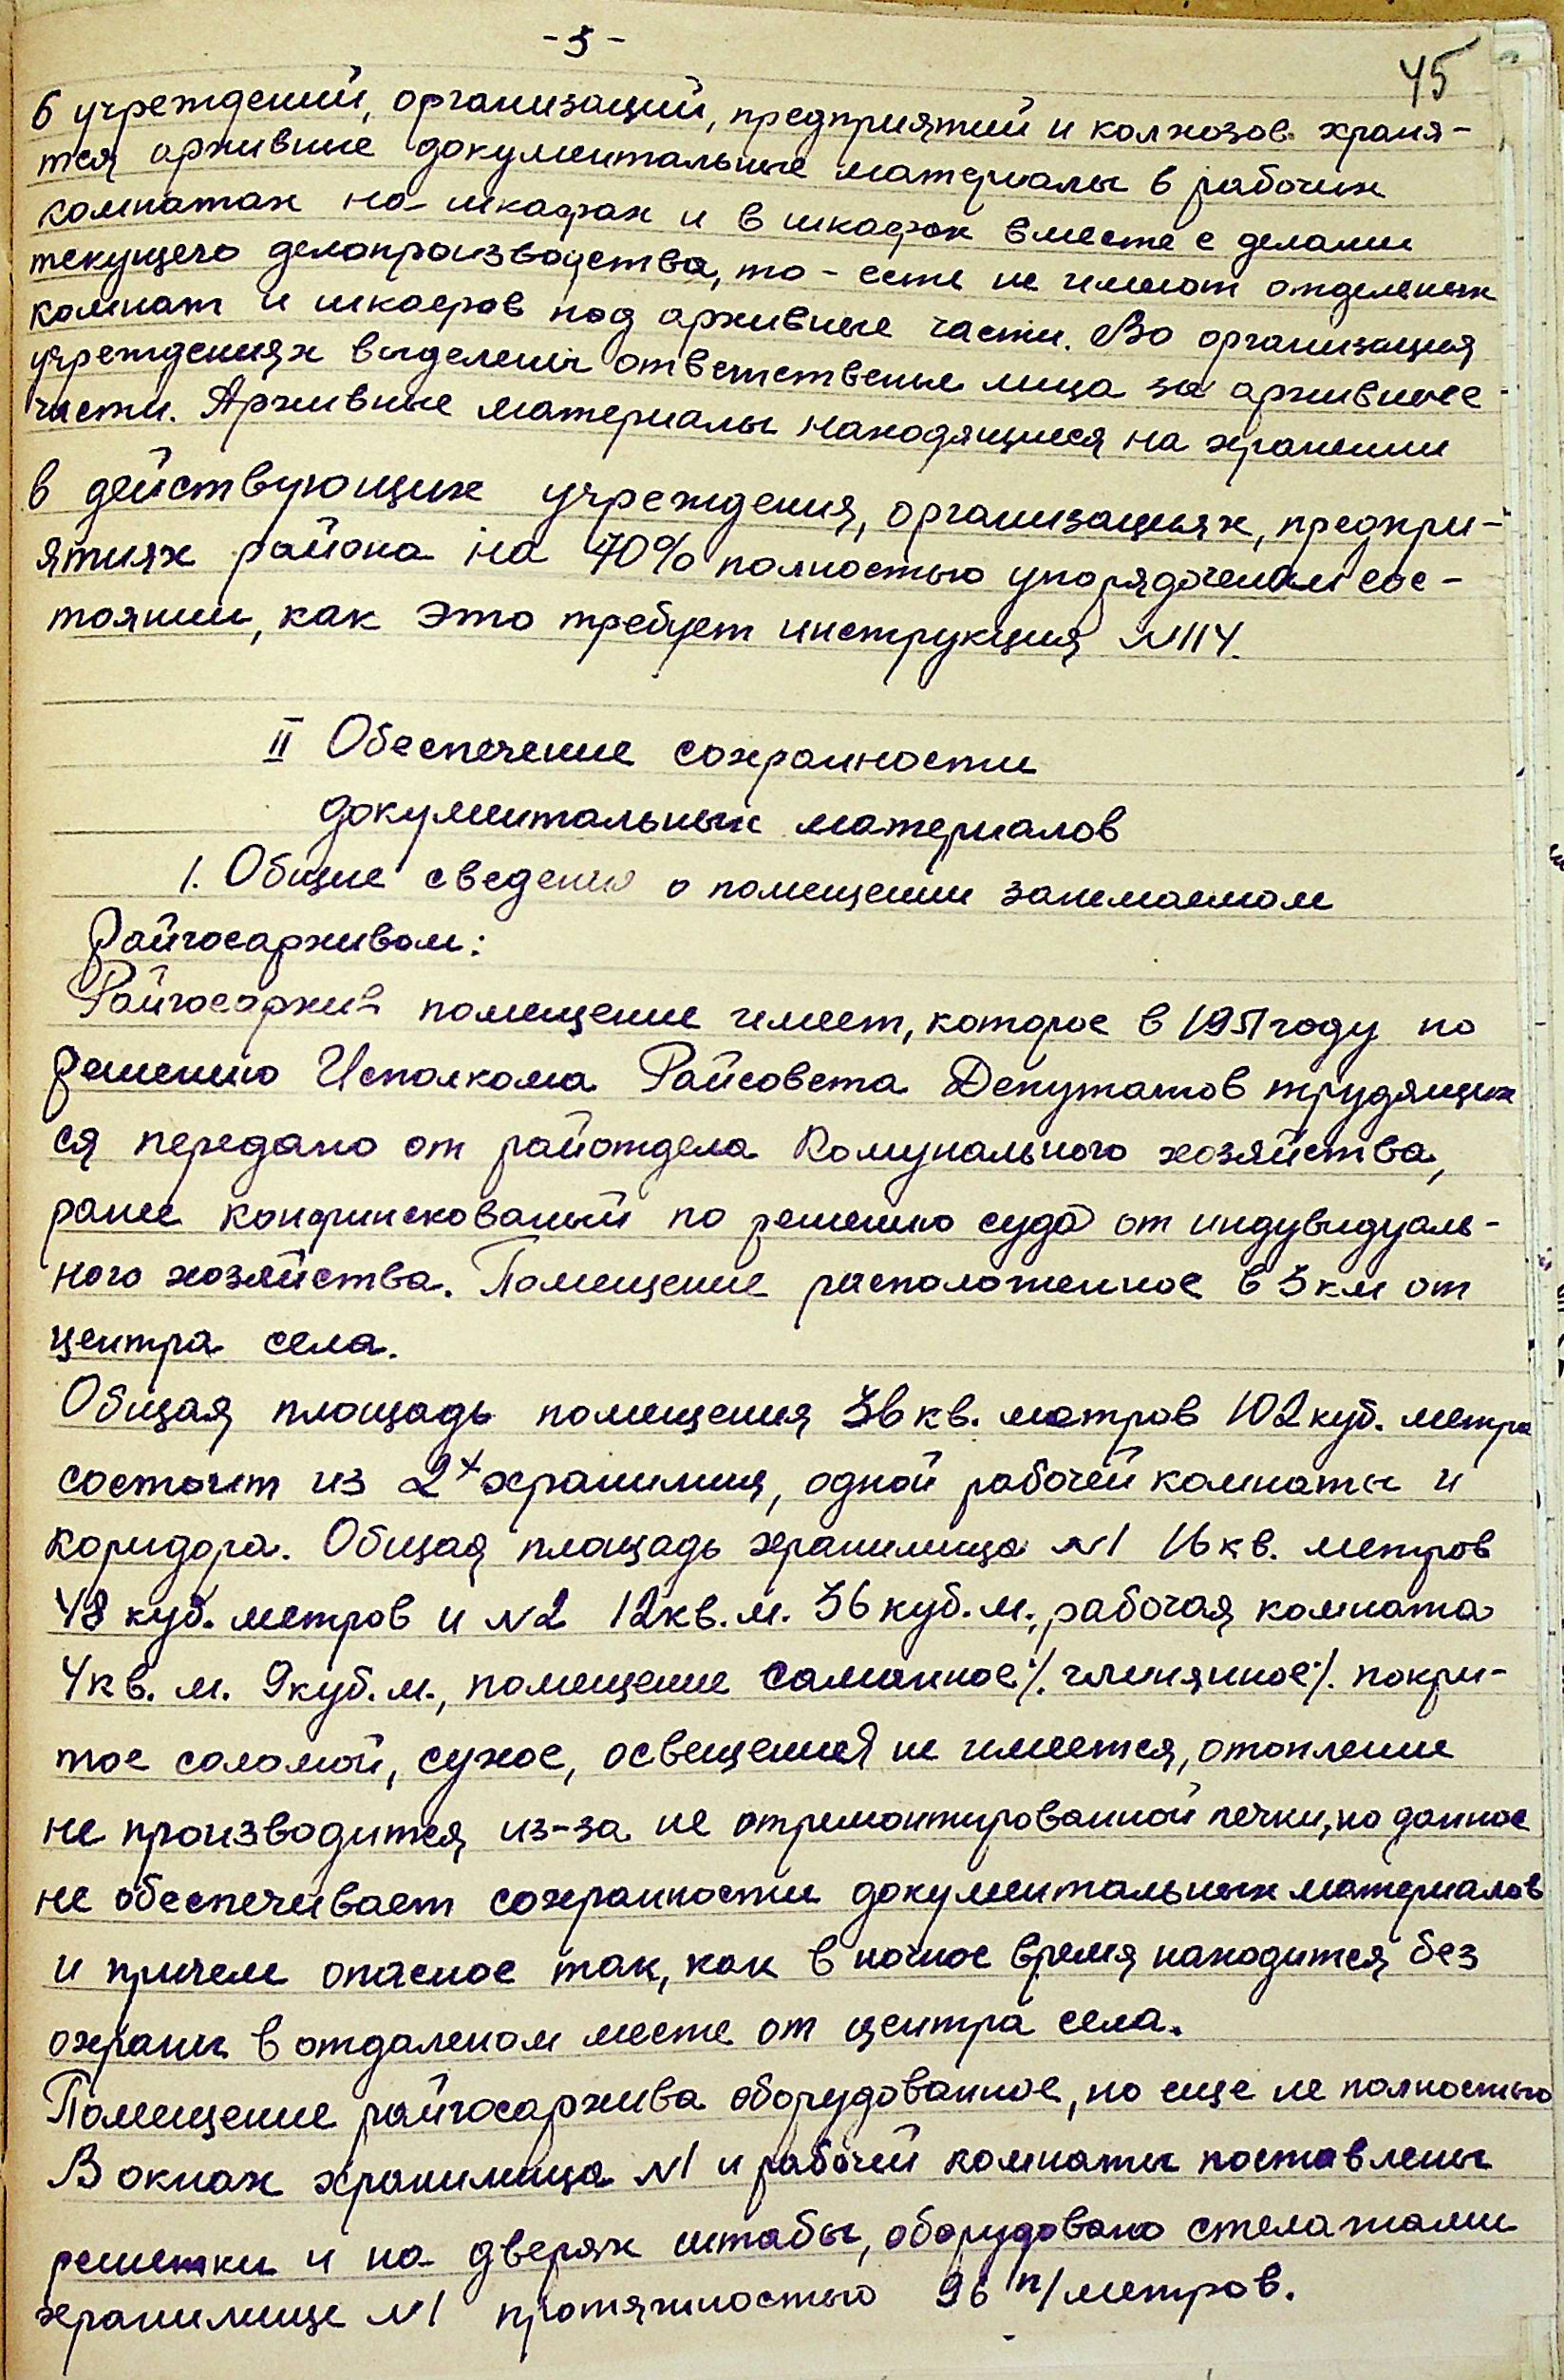 - 3 -
45
в учреждений, организаций, предприятий и колхозов храня-
тся архивние документальние материалы в рабочих
комнатах на шкафах и в шкафах вместе с делами
текущего делопроизводства, то - есть не имеют отдельних
комнат и шкафов под архивные части. Во организация
учреждениях выделени ответственые лица за архивные
части. Архивные материалы находящиеся на хранении
в действующих учреждения, организациях, предпри-
ятиях района на 70% полностью упорядоченам сос-
тоянии, как это требует инструкция №114.
II Обеспечение сохранности
документальных материалов
1. Общие сведения о помещении занимаемом
Райгосархивом:
Райгосархив помещение имеет, которое в 1951 году по
Решению Исполкома Райсовета Депутатов трудящих
ся передано от райотдела Комунального хозяйства,
ранее конфискованый по решению суда от индувидуаль-
ного хозяйства. Помещение расположенное в 3 км от
центра села.
Общая площадь помещения 36 кв. метров 102 куб. метра
состоит из 2х хранилищ, одной рабочей комнаты и
коридора. Общая площадь хранилища №1 16 кв. метров
48 куб. метров и №2 12 кв. м. 36 куб. м., рабочая комната
4 кв. м. 9 куб. м., помещение саманное ./. глинянное ./. покри-
тое соломой, сухое, освещения не имеется, отопление
не производится из-за не отремонтированной печки, но данное
не обеспечивает сохранности документальных материалов
и причем опасное так, как в ночное время находится без
охраны в отдаленом месте от центра села.
Помещение райгосархива оборудованное, но еще не полностью
В окнах хранилища №1 и рабочей комнаты поставлены
решетки и на дверях штабы, оборудовано стелажами
хранилище №1 протяжностью 96 п/метров.